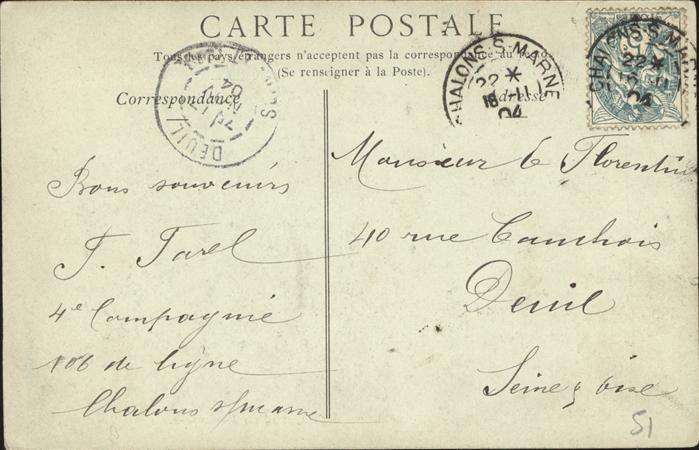 CARTE POSTALE
Tous les pays étrangers n'acceptent pas la correspondance au
(Se renseigner à la Poste).
Correspondance
Adresse
CHALONS S. MARNE
22 *
18 -11
04
CHALONS S. MARNE
22 *
04
DEUIL
04
Bons souvenirs
F. Tarel
4e Compagnie
106 de ligne
Chalons s/marne
Monsieur E Florentin
40 rue Cauchois
Deuil
Seine & oise
51